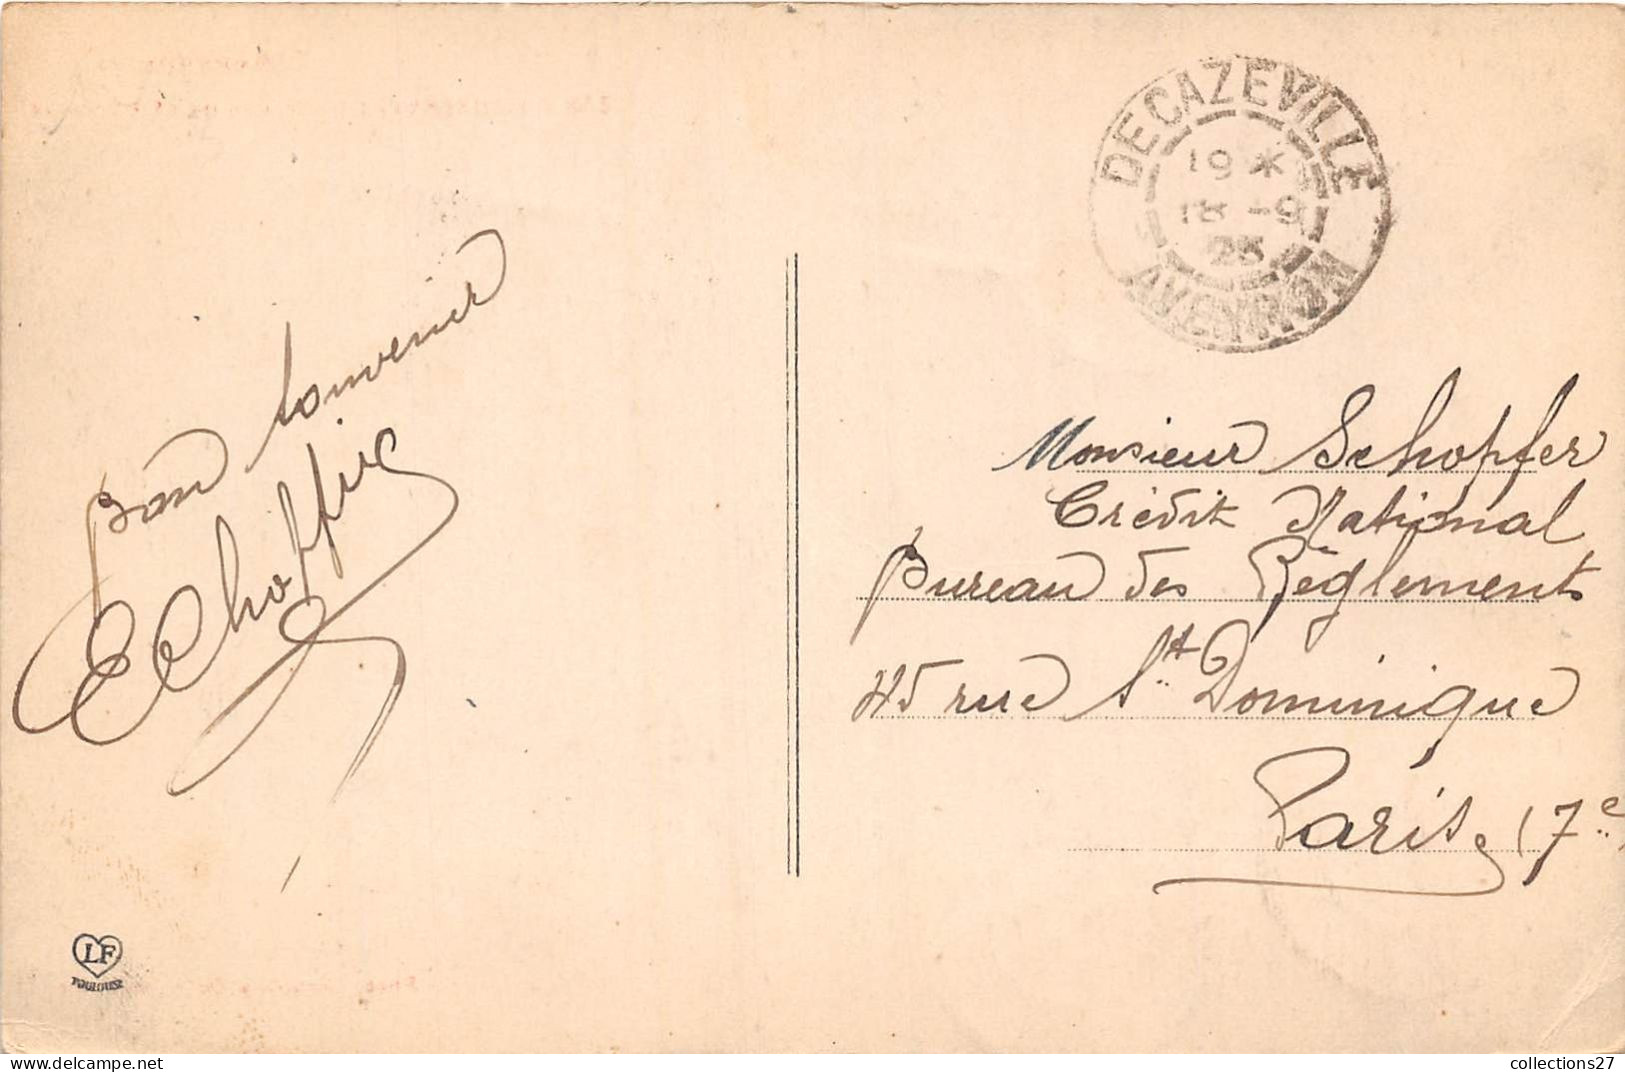 Bon souvenir
DECAZEVILLE
19 *
18 - 9
25
AVEYRON
Monsieur Schopfer
Crédit National
Bureau des Règlements
45 rue St Dominique
Paris (7e
LF
TOULOUSE
collections27